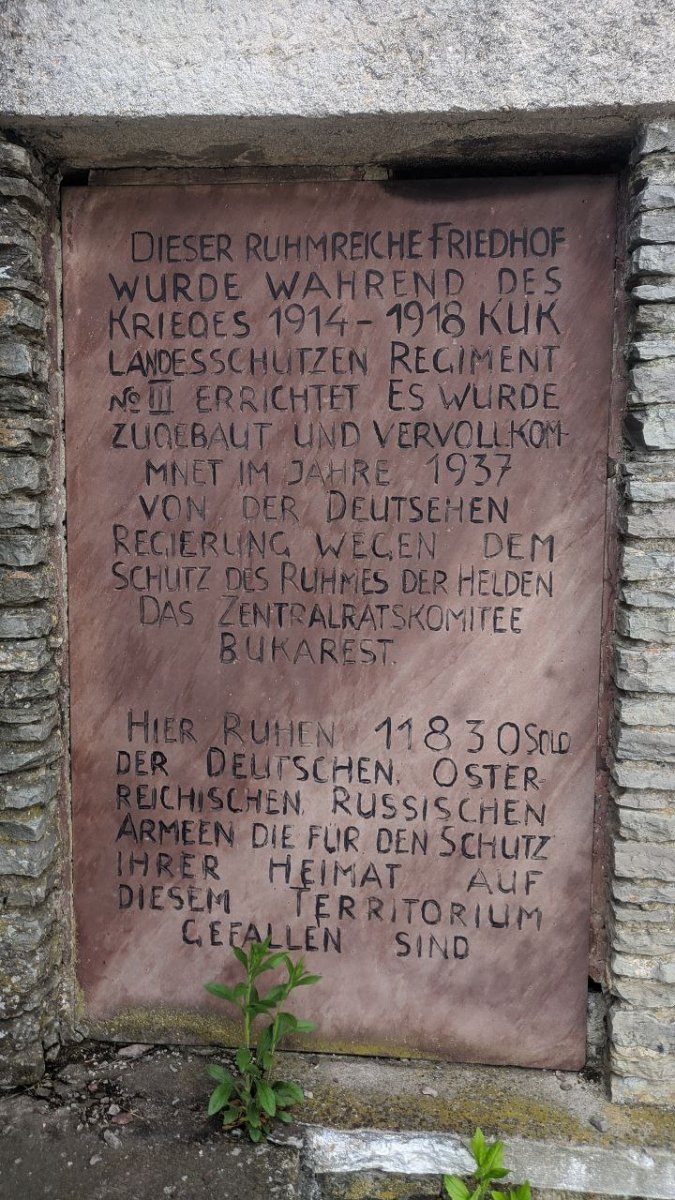 DIESER RUHMREICHE FRIEDHOF
WURDE WAHREND DES
KRIEGES 1914-1918 KUK
LANDESSCHUTZEN REGIMENT
No III ERRICHTET ES WURDE
ZUGEBAUT UND VERVOLLKOM-
MNET IM JAHRE 1937
VON DER DEUTSEHEN
REGIERUNG WEGEN DEM
SCHUTZ DES RUHMES DER HELDEN
DAS ZENTRALRATSKOMITEE
BUKAREST.
HIER RUHEN 11830 SOLD
DER DEUTSCHEN. OSTER-
REICHISCHEN. RUSSISCHEN
ARMEEN DIE FÜR DEN SCHUTZ
IHRER HEIMAT AUF
DIESEM TERRITORIUM
GEFALLEN SIND